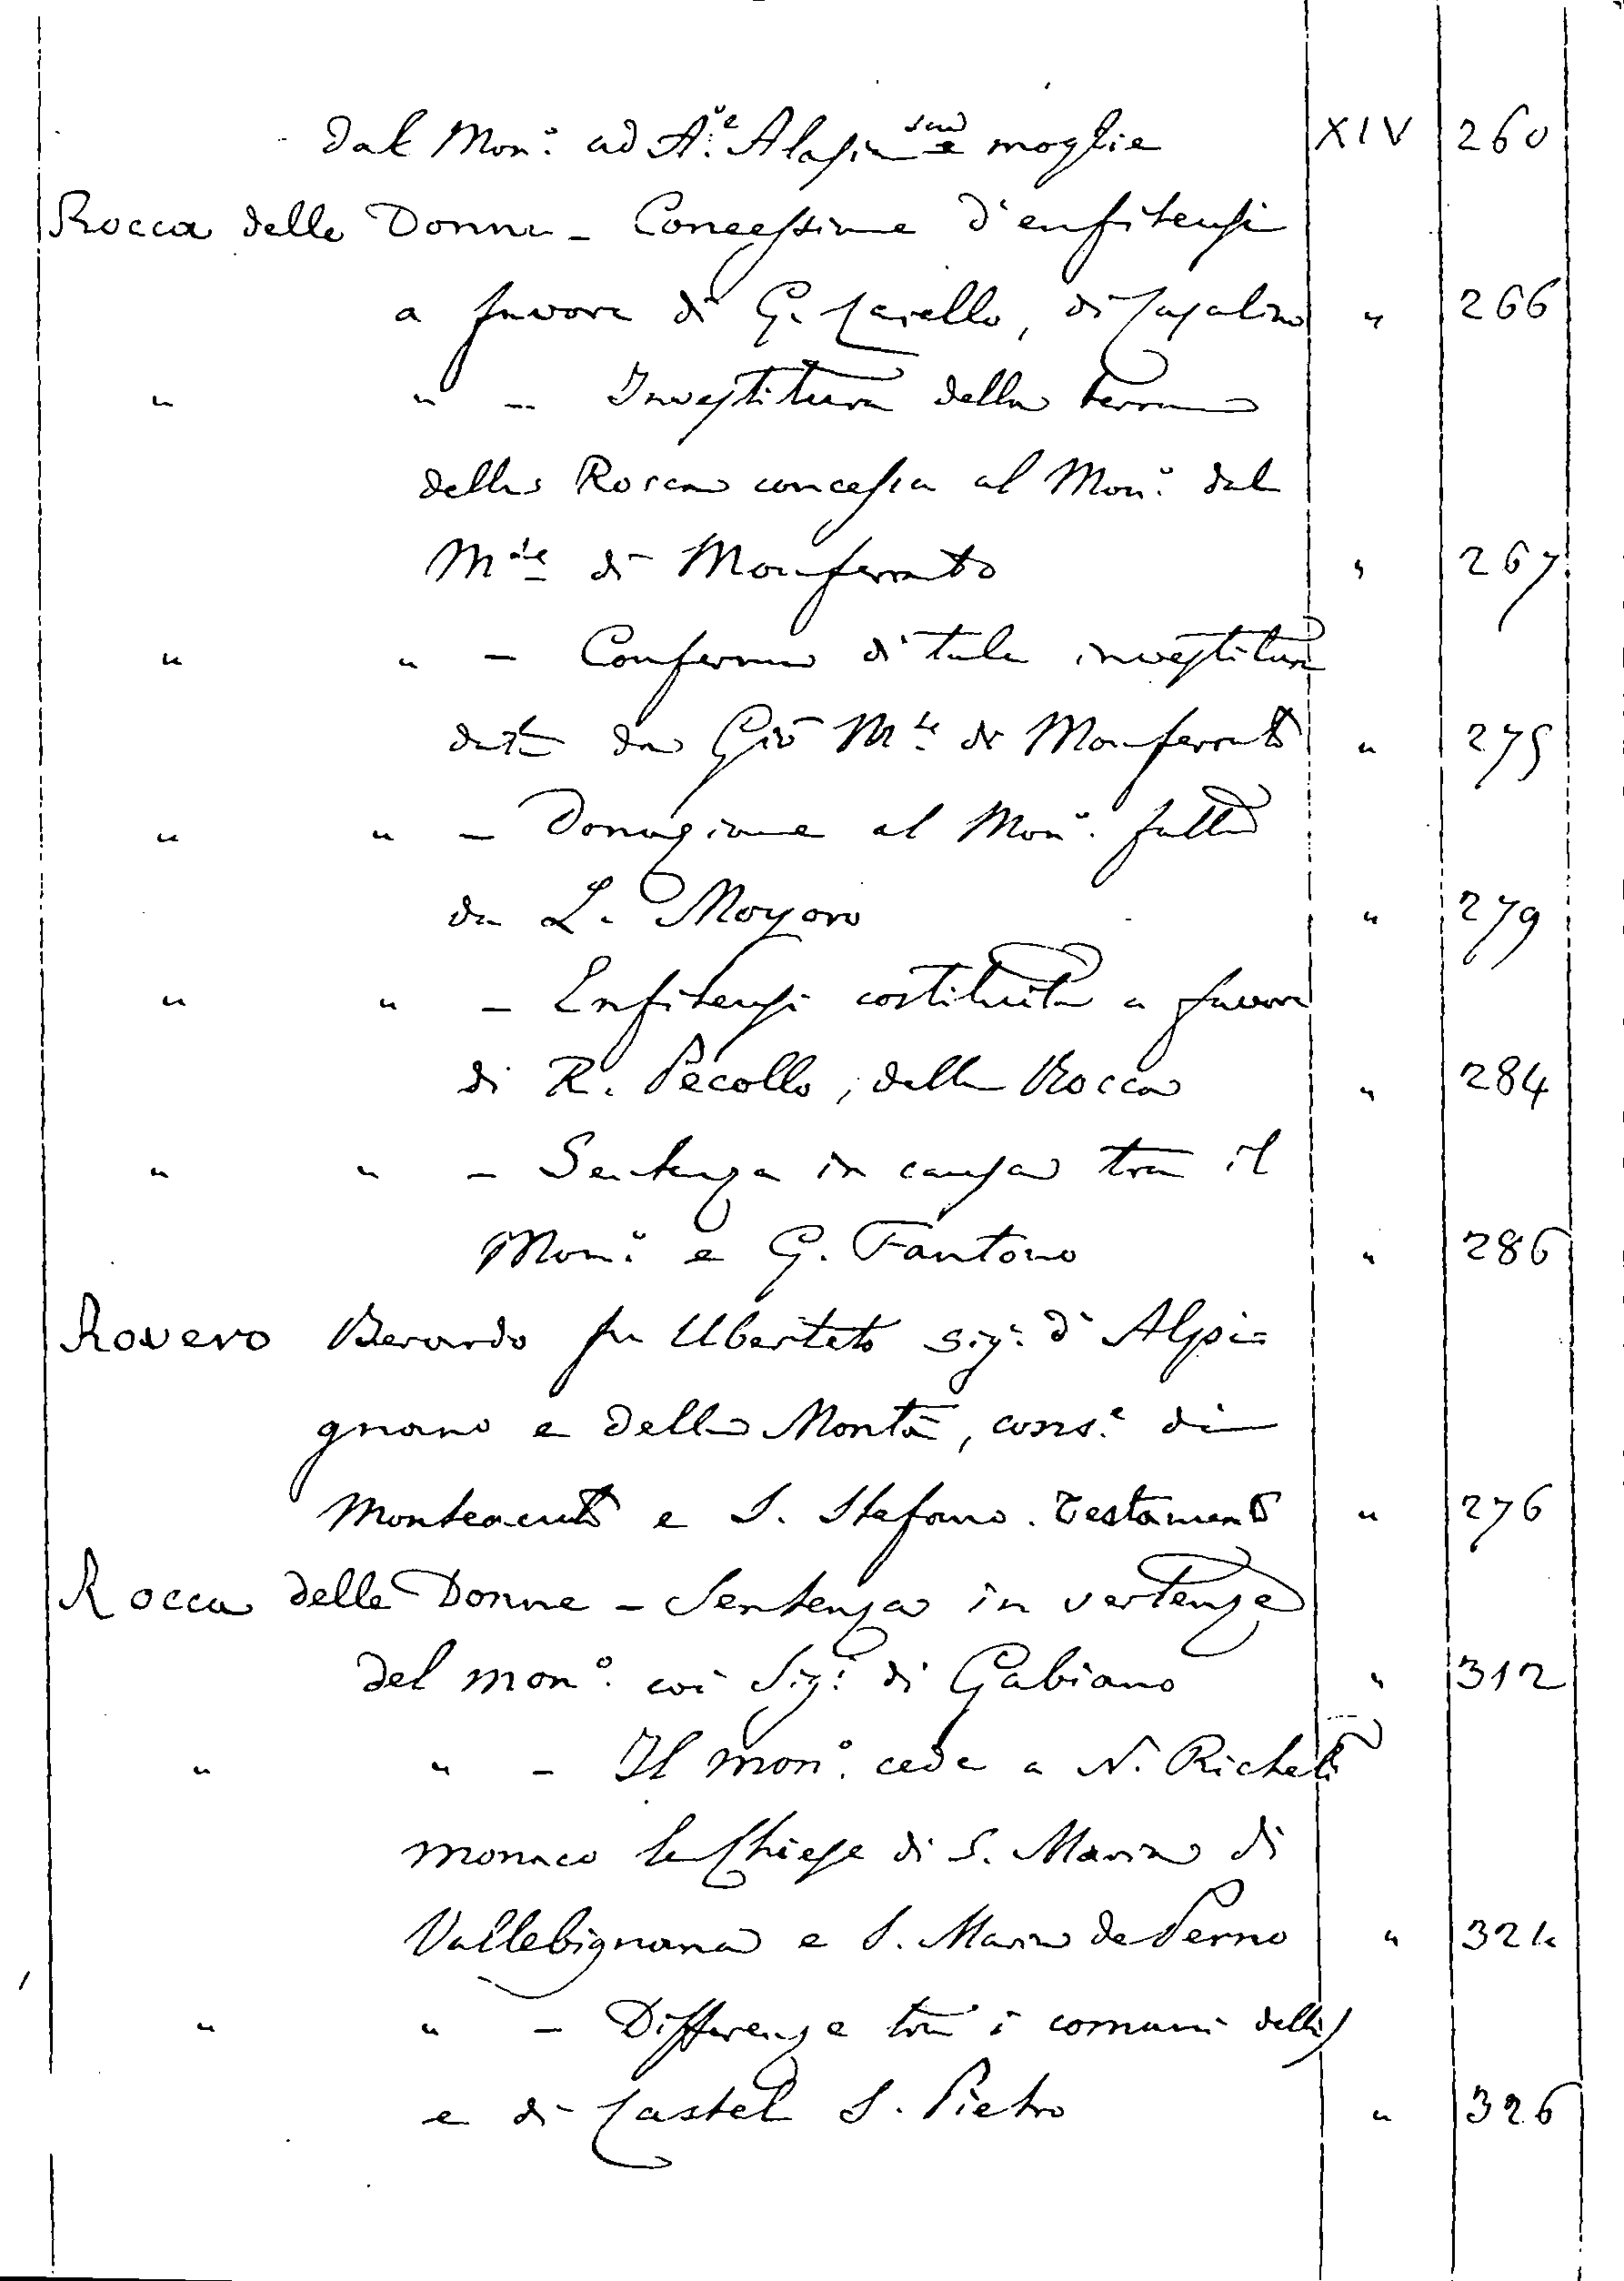 dal Mon:º ad A:e Alasia e sua moglie XIV 260
Rocca delle Donne - Concessione d'enfiteusi
a favore di G. Cavello, di Casalino " 266
" " - Investitura della terra
della Rocca concessa al Mon:º dal
M.se di Monferrato " 267.
" " - Conferma di tale investitura
data da Giō M.se di Monferrato " 275
" " - Donazione al Monº. fatta
da L. Moyoro " 279
" " - Enfiteusi costituita a favore
di R. Pecollo, della Rocca " 284
" " - Sentenza in causa tra il
Mon:º e G. Fantono " 286
Rovero Berardo fu Uberteto sig.r d'Alpi=
gnano e della Montà, cons.e di
Monteacuto e S. Stefano. Testamento " 276
Rocca delle Donne - Sentenza in vertenza
del monº. coi Sig.i di Gabiano " 312
" " - Il monº. cede a N. Richeti
monaco le Chiese di S. Maria di
Vallebignana e S. Maria de Perno " 324
" " - Differenze tra i comuni della
e di Castel S. Pietro " 326